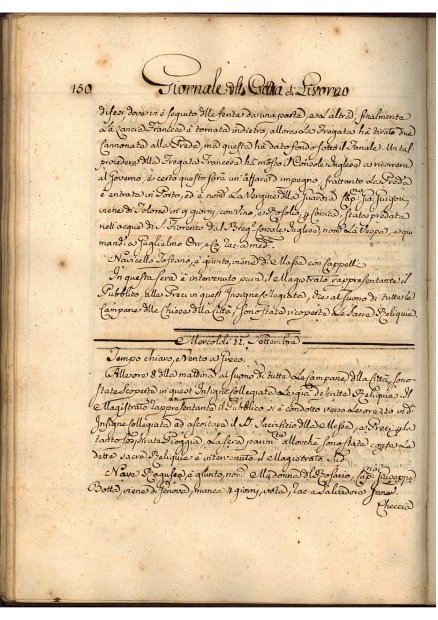 150 Giornale della Città di Livorno
difesi, dove vi è seguito delle ferite da una parte, e l'altra, finalmente
la Lancia Francese è tornata indietro, allora la Fregata hà tirato due
Cannonate alla Preda, mà questa hà dato fondo sotto il Fanale. Un tal
procedere della Fregata Francese hà mosso il Console Inglese a ricorrere
al Governo, è certo questo sarà un'affare d'impegno, frattanto la Preda
è entrata in Porto, ed è nom: La Vergine della Guardia Cap:
viene di Tolone in 9 giorni, con vino, e Rosolio, stata predata
nell'acque di S. Fiorenzo dal Brig: Corsale Inglese nom: La Vespa,
mand: a Guglielmo
Navicello Toscano, è giunto, viene di Massa con Cappelli.
In questa sera è intervenuto pure il Magistrato rappresentante il
Pubblico, alle Preci in quest'Insigne Collegiata, che al suono di tutte le
Campane delle Chiese della Città, sono state ricoperte le Sacre Reliquie.
Mercoldì 11. Settembre
Tempo chiaro, e Vento a Greco.
Alle ore 8 della mattina al suono di tutte le Campane della Città, sono
state Scoperte in quest'Insigne Collegiata le già dette Reliquie. Il
Magistrato rappresentante il Pubblico si è condotto verso le ore 12 in d:
Insigne Collegiata ad ascoltare il S. Sacrifizio della Messa, e Preci p la
tanto sospirata Pioggia. La sera parim: allorchè sono state coperte le
dette sacre Reliquie è intervenuto il Magistrato Sud:
Nave Ragusea, è giunta, nom: Madonna del Rosario, Cap: Giuseppe
Botta, viene di Genova, manca 4 giorni, vota, rac: a Salvadore
Checcia